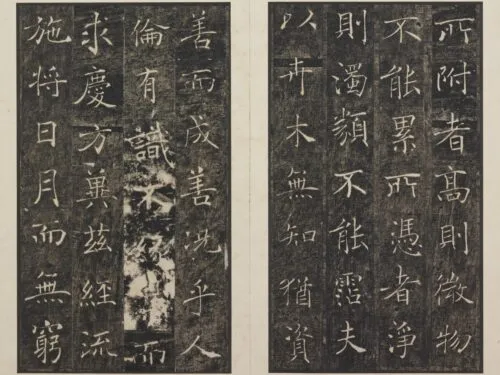 所附者高則微物
不能累所憑者淨
則濁類不能霑夫
以卉木無知猶資
善而成善況乎人
倫有識不緣而
求慶方冀茲經流
施將日月而無窮